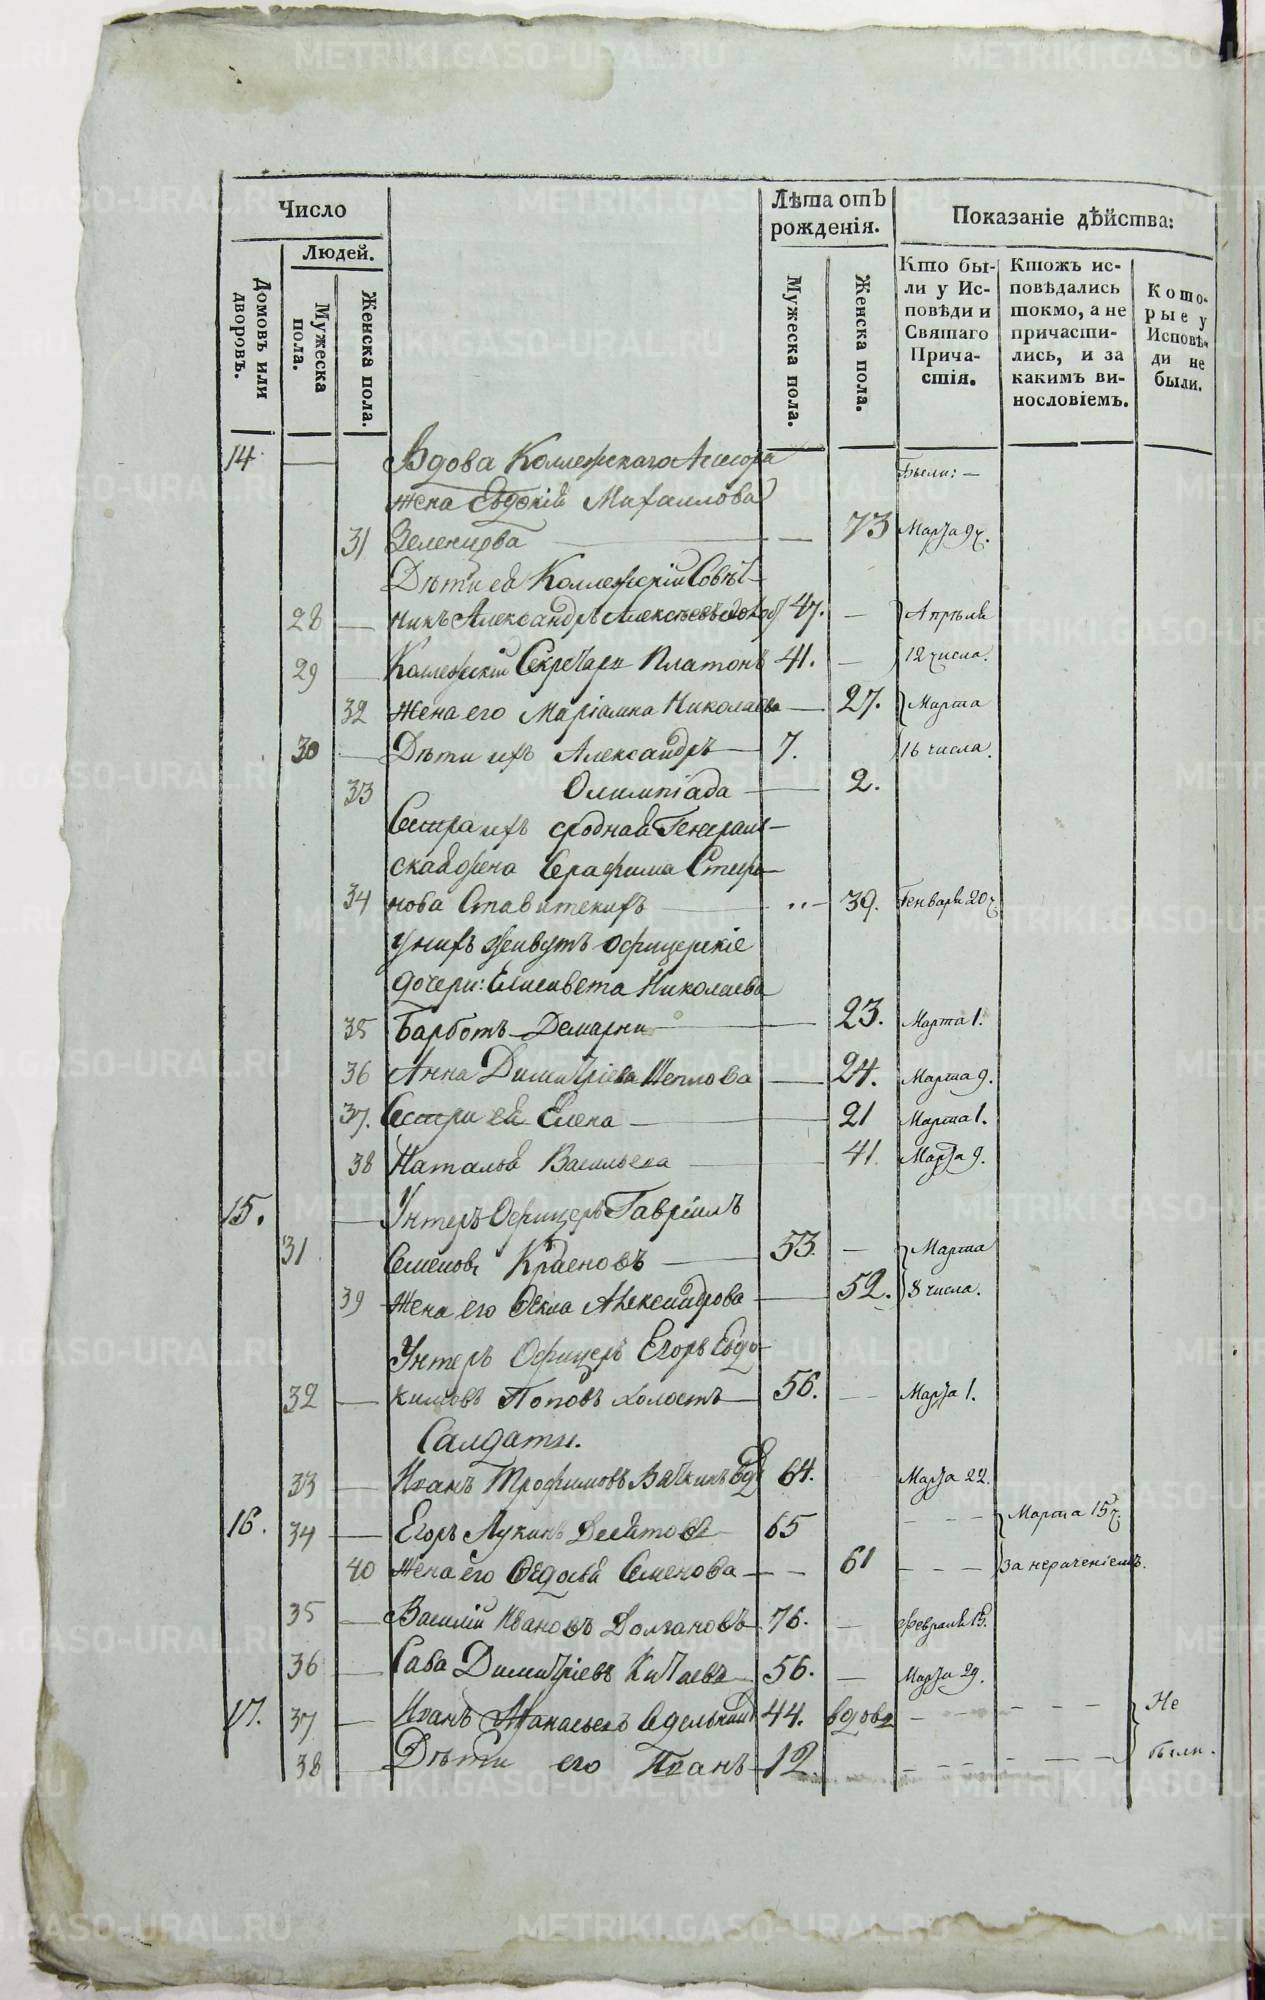 Число
Людей.
Домовъ или дворовъ.
Мужеска пола.
Женска пола.
Лѣта отъ рожденія.
Мужеска пола.
Женска пола.
Показаніе дѣйства:
Кто были у Исповѣди и Святаго Причастія.
Ктожъ исповѣдались токмо, а не причастились, и за какимъ винословіемъ.
Которые у Исповѣди не были.
14 — Вдова Коллежскаго Ассесора Были: —
жена Евдокія Михаилова
31 Зеленцова — — 73 Марта 9 ч.
Дѣти ея Коллежскій Совѣт-
28 — никъ Александръ Алексѣевъ 47. — Апрѣля
29 — Коллежскій Секретарь Платонъ 41. — 12 числа.
32 Жена его Маріамна Николаева — 27. Марта
30 — Дѣти ихъ Александръ — 7. 16 числа.
33 Олимпіада — — 2.
Сестра ихъ сродная Генераль-
ская жена Серафима Стефа-
34 нова Ставитскихъ — 39. Генваря 20 ч.
У нихъ живутъ офицерскіе
дочери: Елисавета Николаева
35 Барботъ-Демарни — — 23. Марта 1.
36 Анна Димитріева — 24. Марта 9.
37. Сестра ея Елена — 21 Марта 1.
38 Наталья Васильева — 41 Марта 9.
15. — Унтеръ-Офицеръ Гавріилъ
31 Семеновъ Краеновъ — 53. — Марта
39 Жена его Ѳекла Александрова — 52. 8 числа.
Унтеръ Офицеръ Егоръ Евдо-
32 — кимовъ Поповъ холостъ — 56. — Марта 1.
Салдаты.
33 — Иванъ Трофимовъ Вяткинъ 64. Марта 22.
16. 34 — Егоръ Лукинъ Десятовъ 65 — — — Марта 15 ч.
40 Жена его Ѳедосья Семенова — — 61 — — — за нераченіемъ.
35 — Василій Ивановъ Долгановъ 76. — Февраля 15.
36 — Сава Димитріевъ Китаевъ 56. — Марта 29.
17. 37 — Иванъ Афанасьевъ 44. вдовъ — — — — — — Не
38 — Дѣти его Иванъ 12. — — — — — — были.
METRIKI.GASO-URAL.RU